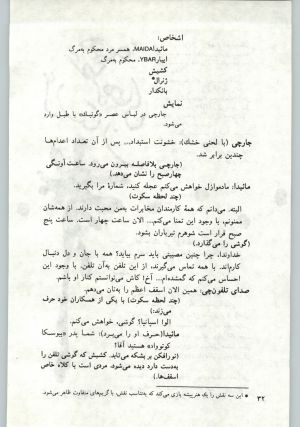 اشخاص:
مائیدا MAIDA، همسر مرد محکوم به‌مرگ
ایبار YBAR، محکوم به‌مرگ
کشیش
ژنرال*
بانکدار
نمایش
جارچی در لباس عصر «گوتیک» با طبل وارد
می‌شود.
جارچی (با لحنی خشك): خشونت استبداد... پس از آن تعداد اعدام‌ها
چندین برابر شد.
(جارچی بلافاصله بیرون می‌رود. ساعت آونگی
چهارصبح را نشان می‌دهد.)
مائیدا: مادموازل خواهش می‌کنم عجله کنید، شمارهٔ مرا بگیرید.
(چند لحظه سکوت)
البته. می‌دانم که همهٔ کارمندان مخابرات به‌من محبت دارند. از همه‌شان
ممنونم، با وجود این تمنا می‌کنم... الان ساعت چهار است. ساعت پنج
صبح قرار است شوهرم تیرباران بشود.
(گوشی را می‌گذارد.)
خداوندا، چرا چنین مصیبتی باید سرم بیاید؟ همه با جان و دل دنبال
کارم‌اند. با همه تماس می‌گیرند، از این تلفن به‌آن تلفن. با وجود این
احساس می‌کنم که گمشده‌ام... آخ! کاش می‌توانستم کنار او باشم.
صدای تلفون‌چی: همین الان اسقف اعظم را به‌تان می‌دهم.
(چند لحظه سکوت) با یکی از همکاران خود حرف
می‌زند.
الو! اسپانیا؟ گوشی، خواهش می‌کنم.
مائیدا: (حرف او را می‌برد): شما پدر «بیوسکا
کوتوواده» هستید آقا؟
(نورافکن بر بشکه می‌تابد. کشیش که گوشی تلفن را
به‌دست دارد دیده می‌شود. مردی است با کلاه خاص
اسقف‌ها.)
* این سه نقش را یك هنرپیشه بازی می‌کند که به‌تناسب نقش، با گریم‌های متفاوت ظاهر می‌شود.
۳۲